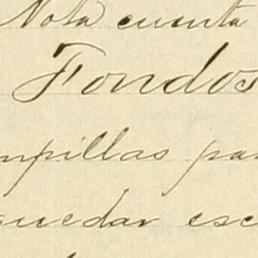 Nota cuenta
Fondos
mpillas par
quedar esc